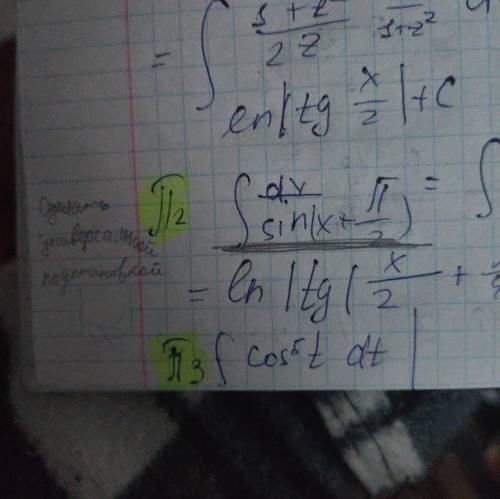 = ∫ (1+z²)/(2z) · /(1+z²)
ln|tg x/2|+C
Сделать универсальной подстановкой
П2 ∫ dx/sin(x+π/2) = ∫
= ln|tg(x/2 +
П3 ∫ cos⁵t dt